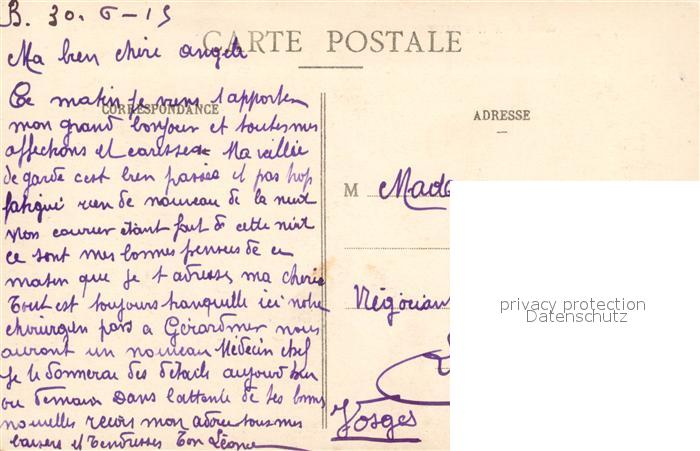 B. 30-6-15
Ma bien chère angele
CARTE POSTALE
Ce matin je viens t'apporter
CORRESPONDANCE
mon grand bonjour et toutes mes
affections et caresses Ma veillée
de garde c'est bien passée et pas trop
fatigué rien de nouveau de la nuit
Mon courrier étant fait de cette nuit
ce sont mes bonnes pensees de ce
matin que je t'adresse ma cherie
Tout est toujours tranquille ici notre
chirurgien pars a Gérardmer nous
auront un nouveau Médecin chef
Je te donnerai des détails aujourd'hui
ou demain Dans l'attente de tes bonnes
nouvelles reçois mon adorée tous mes
baisers et Tendresses Ton Léon
ADRESSE
M Mada
Négocian
Vosges
privacy protection
Datenschutz